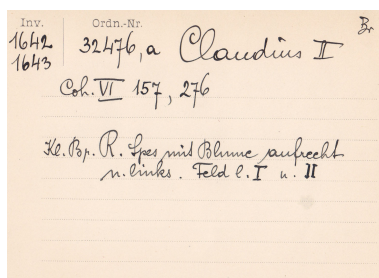 Inv. Ordn.-Nr. Br
1642 32476, a Claudius II
1643
Coh. VI 157, 276
Kl. Br. R. Spes mit Blume aufrecht
n. links. Feld l. I u. II